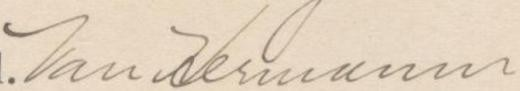 . Van Hermann